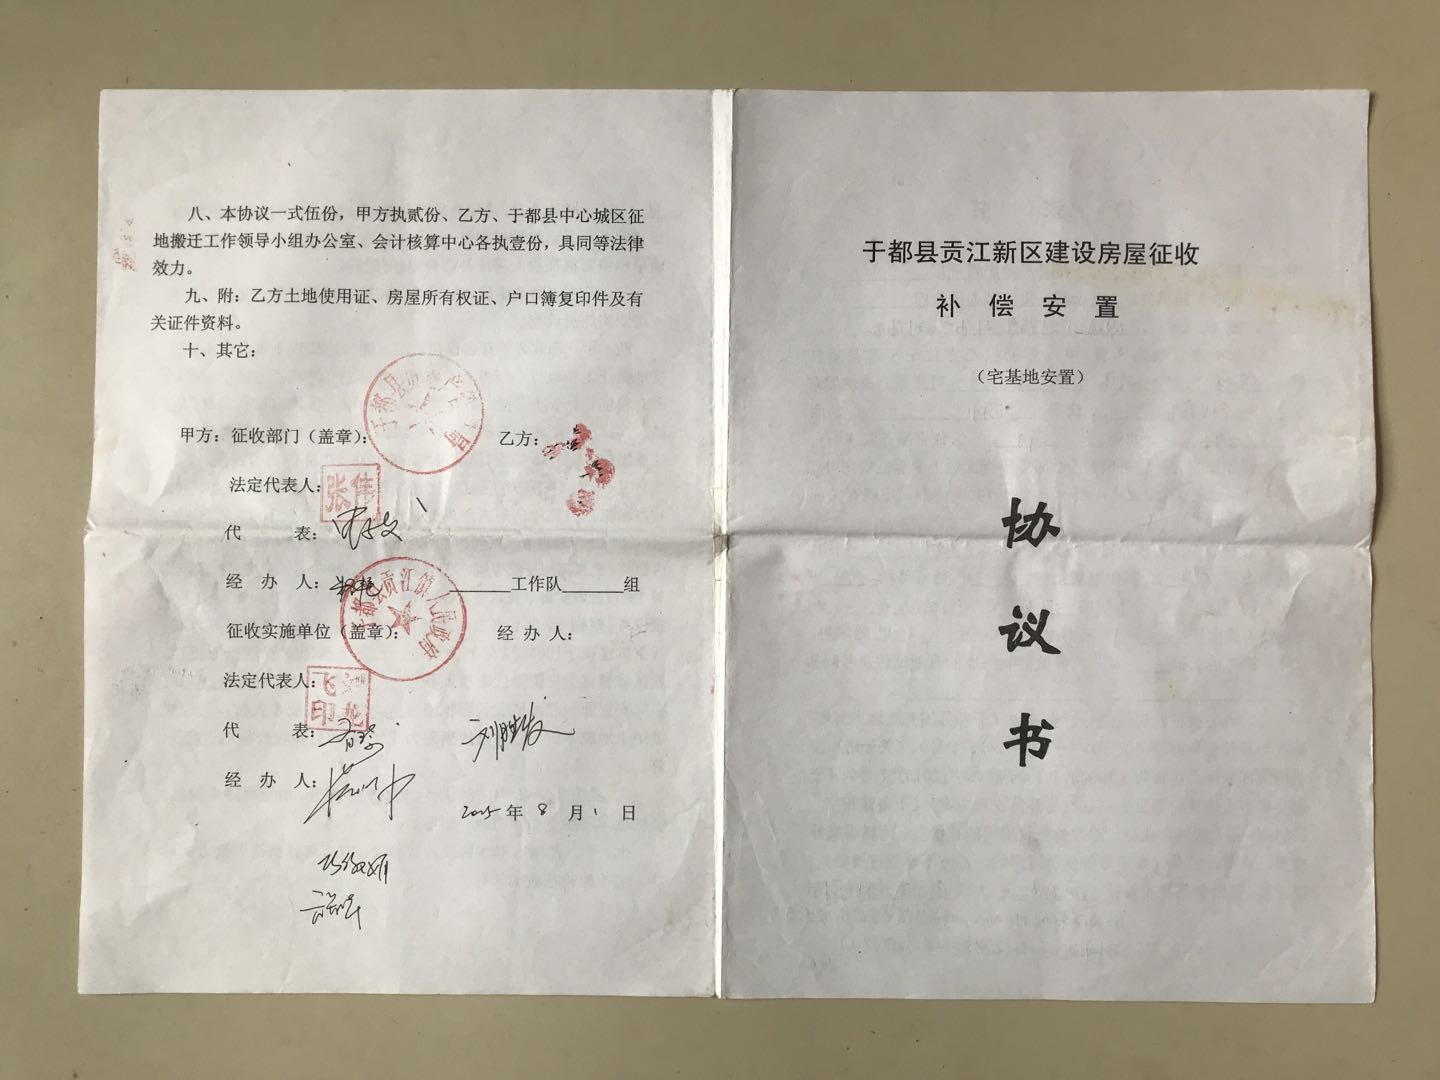 八、本协议一式伍份，甲方执贰份、乙方、于都县中心城区征
地搬迁工作领导小组办公室、会计核算中心各执壹份，具同等法律
效力。
九、附：乙方土地使用证、房屋所有权证、户口簿复印件及有
关证件资料。
十、其它：
甲方：征收部门（盖章）：
乙方：
法定代表人：
张伟
代 表：
经 办 人：
______工作队______组
于都县贡江镇人民政府
征收实施单位（盖章）：
经 办 人：
法定代表人：
代 表：
经 办 人：
2015年 8 月 1 日
于都县贡江新区建设房屋征收
补 偿 安 置
（宅基地安置）
协
议
书